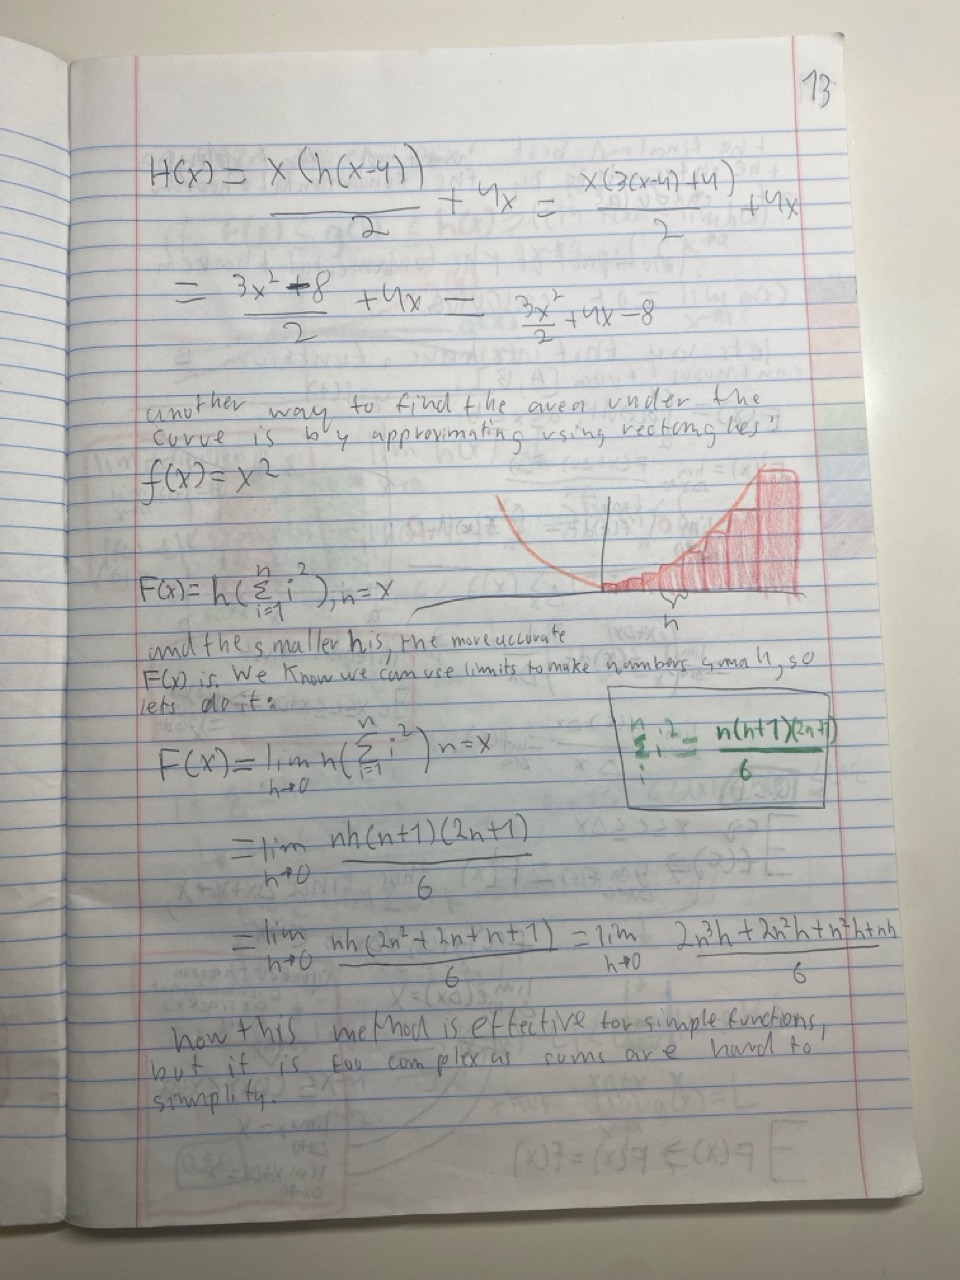 13
H(x) = x(h(x-4))/2 + 4x = x(3(x-4)+4)/2 + 4x
= 3x² - 8/2 + 4x = 3x²/2 + 4x - 8
another way to find the area under the
curve is by approximating using rectangles:
f(x) = x²
F(x) = h(∑_{i=1}^{n} i²), n = x
h
and the smaller h is, the more accurate
F(x) is. We know we can use limits to make numbers small, so
lets do it:
∑_{i}^{n} i² = n(n+1)(2n+1)/6
F(x) = lim_{h→0} h(∑_{i=1}^{n} i²) n = x
= lim_{h→0} nh(n+1)(2n+1)/6
= lim_{h→0} nh(2n²+2n+n+1)/6 = lim_{h→0} 2n³h+2n²h+n²h+nh/6
now this method is effective for simple functions,
but it is too complex as sums are hard to
simplify.